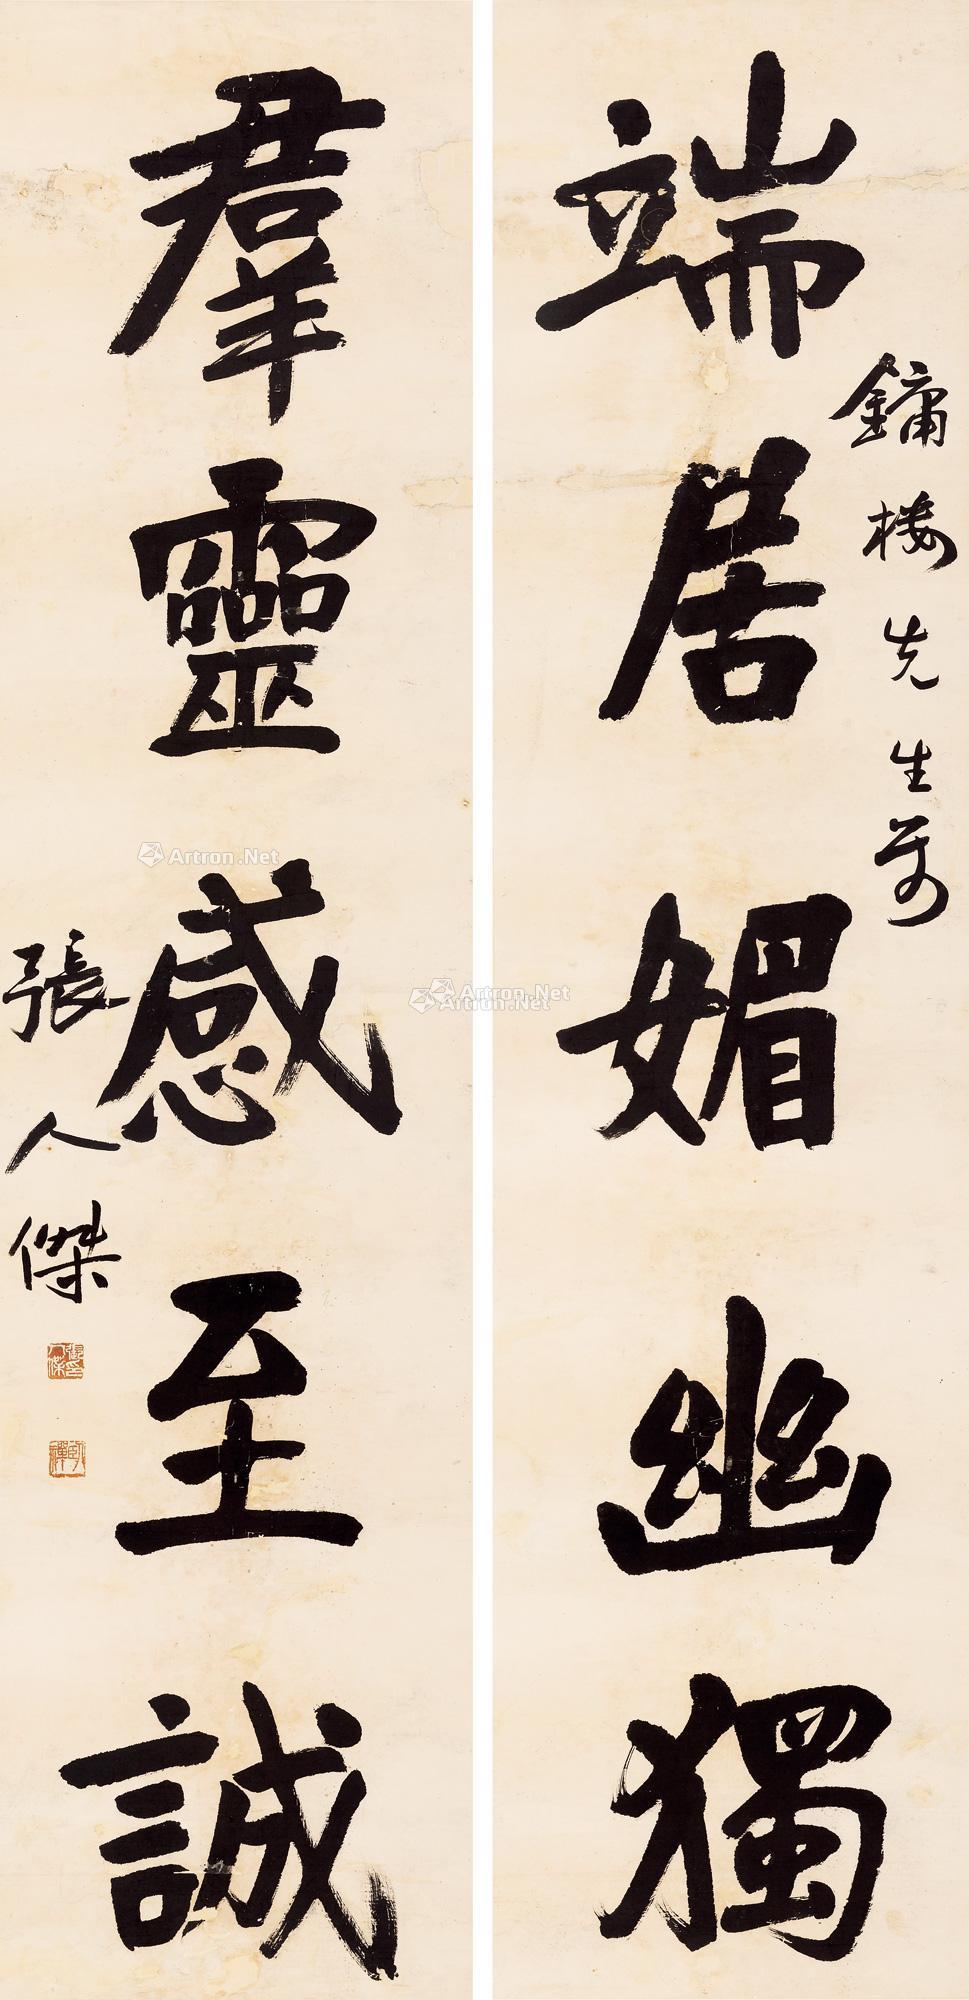 端居媚幽獨
鏞樓先生屬
羣靈感至誠
張人傑
Artron.Net
Artron.Net
Artron.Net